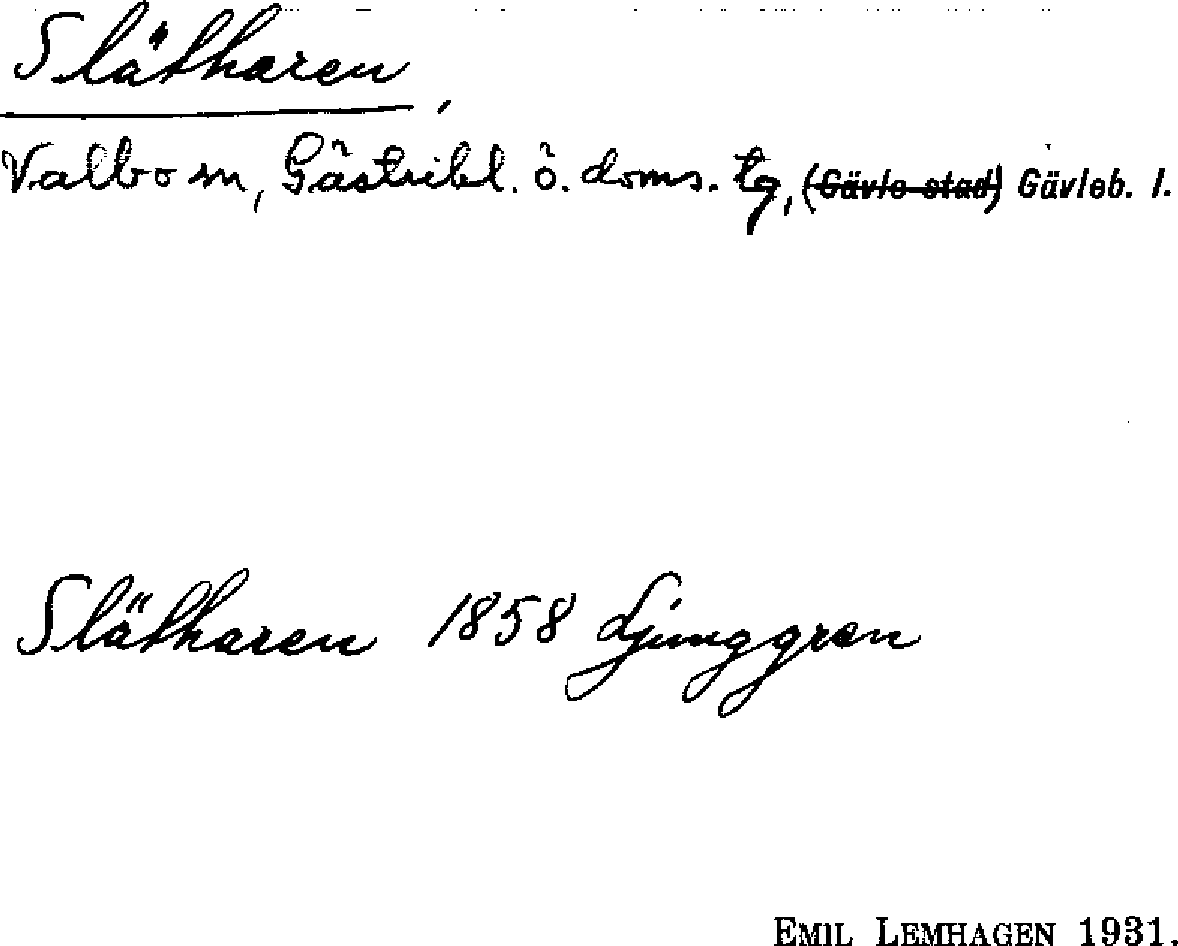 Slätharen,
Valbo sn, Gästrikl. ö. doms. tg, (Gävle stad) Gävleb. l.
Slätharen 1858 Ljunggren
EMIL LEMHAGEN 1931.